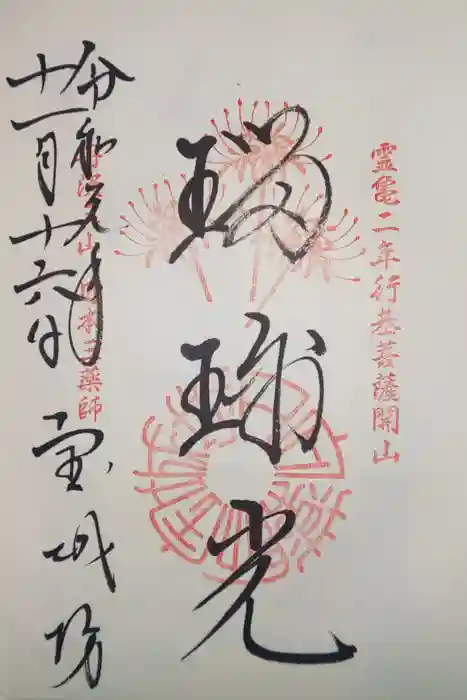 霊亀二年行基菩薩開山
瑠璃光
日本三薬師
令和元年
十一月十六日
宝城坊